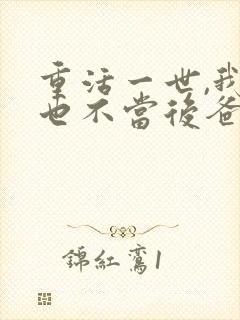 重活一世,我
也不當後爸
錦紅鸞1